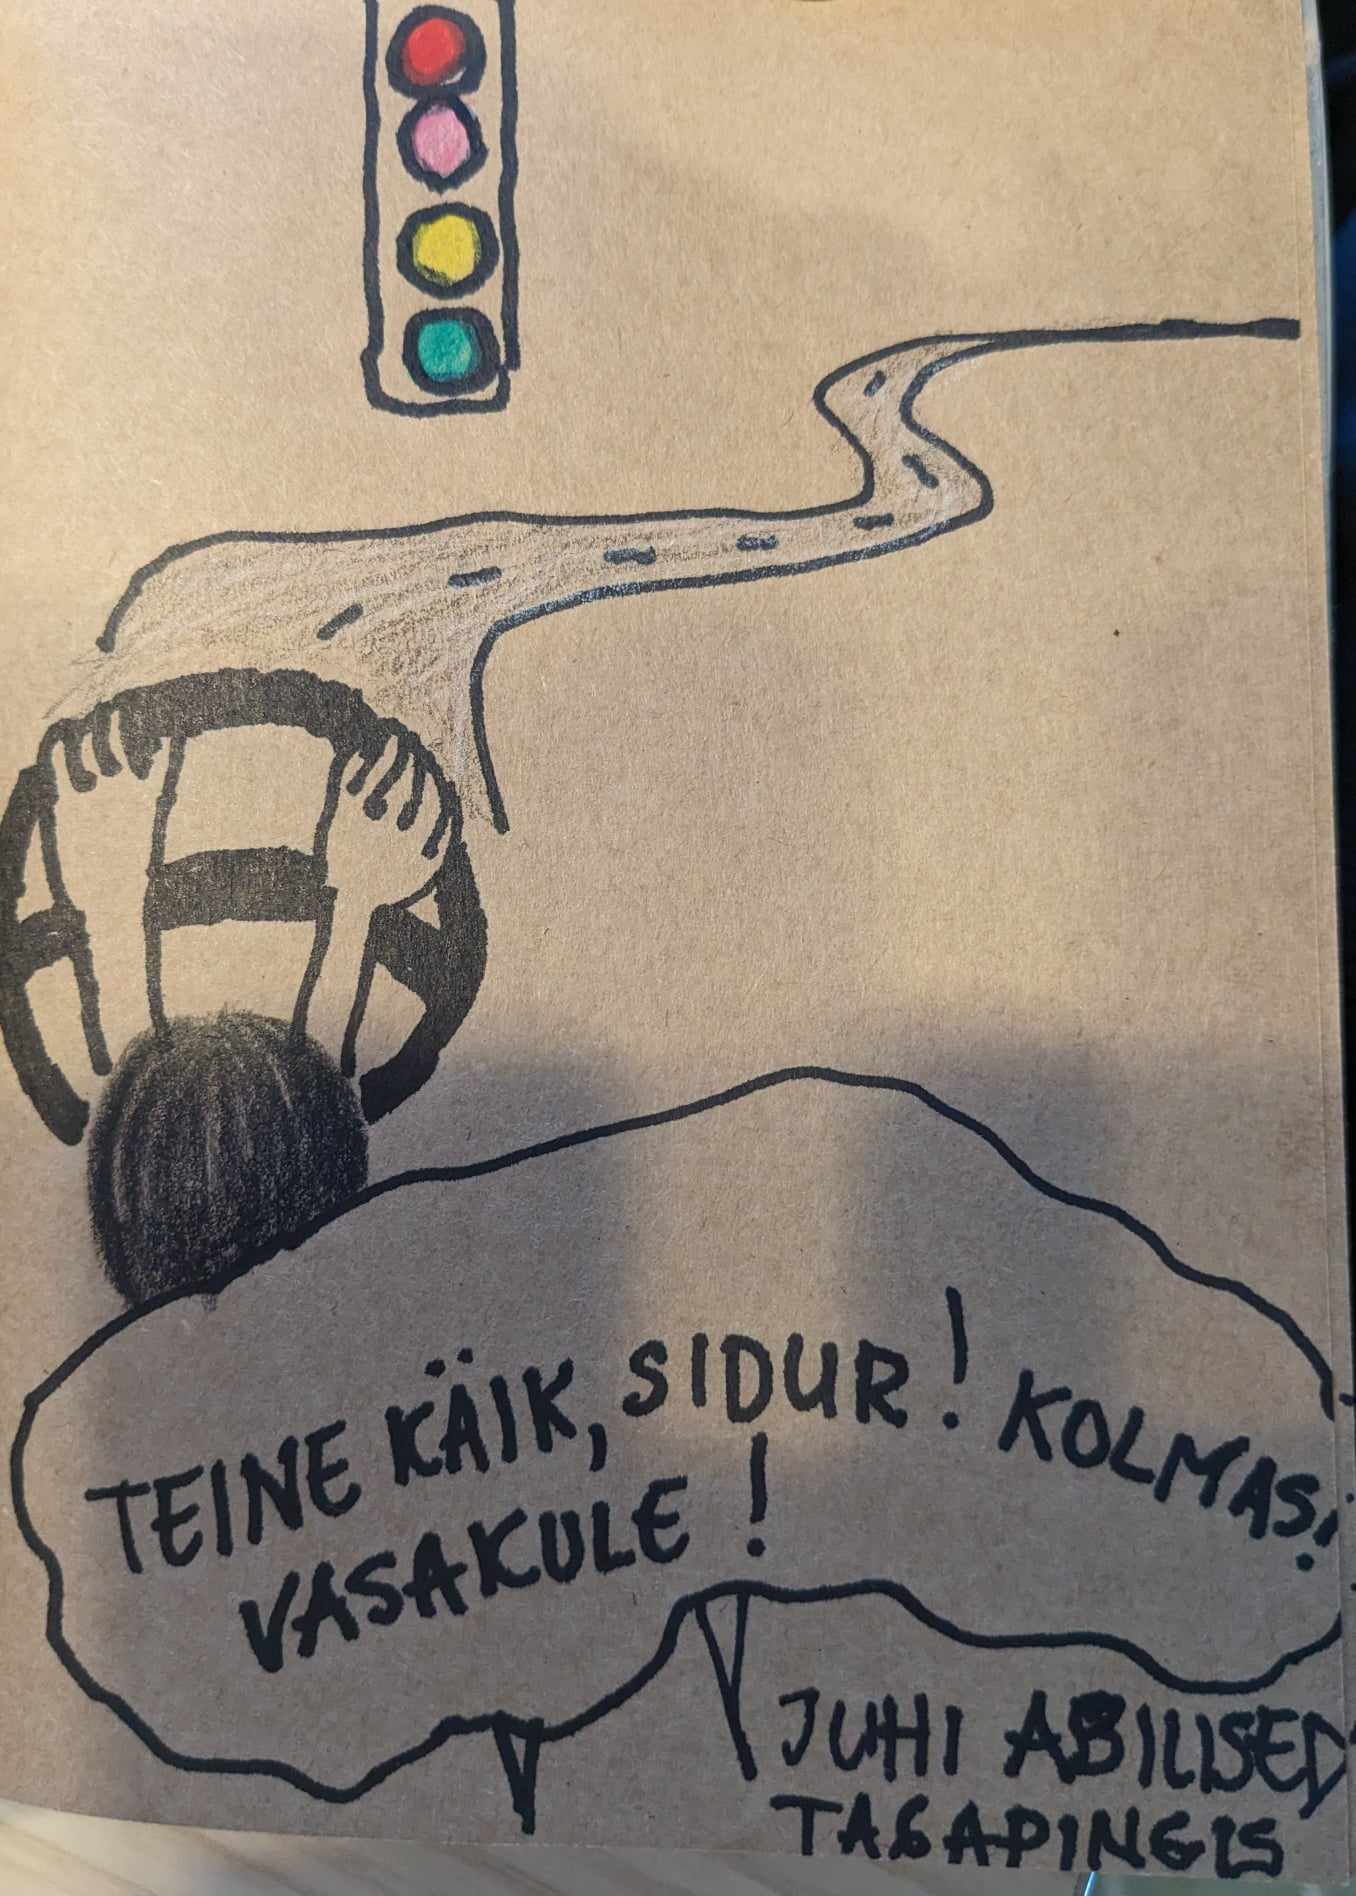 TEINE KÄIK, SIDUR! KOLMAS!
VASAKULE!
JUHI ABILISED
TAGAPINGIS